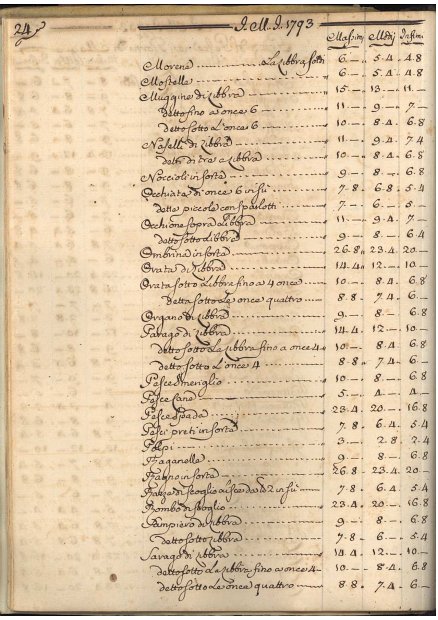 24
J. M. J. 1793
Massimi Medij Infimi
Morena La Libbra soldi 6 — 5.4 4.8
Mostelle 6 — 5.4 4.8
Muggine di Libbra 15 — 13 — 11 —
detto fino a once 6 11 — 9 — 7 —
detto sotto l'once 6 10 — 8.4 6.8
Naselli di Libbra 11 — 9.4 7.4
detti di tre a Libbra 10 — 8.4 6.8
Noccioli in sorta 9 — 8 — 6.8
Occhiate di once 6 in sù 7.8 6.8 5.4
dette piccole con sparlotti 7 — 6 — 5 —
Occhione sopra Libbra 11 — 9.4 7 —
detto sotto Libbra 9 — 8 — 6.4
Ombrina in sorta 26.8 23.4 20 —
Orata di Libbra 14.4 12 — 10 —
Orata sotto Libbra fino a 4 once 10 — 8.4 6.8
Detta sotto le once quattro 8.8 7.4 6 —
Organo di Libbra 9 — 8 — 6.8
Parago di Libbra 14.4 12 — 10 —
detto sotto La Libbra fino a once 4 10 — 8.4 6.8
detto sotto l'once 4 8.8 7.4 6 —
Pesce smeriglio 10 — 8 — 6.8
Pesce Cane 5 — 4 — 4 —
Pesce Spada 23.4 20 — 16.8
Pesci preti in sorta 7.8 6.4 5.4
Polpi 3 — 2.8 2.4
Raganelle 9 — 8 — 6.8
Ragno in sorta 26.8 23.4 20 —
Razze di scoglio lisce da lb 2 in sù 7.8 6.4 5.4
Rombo di scoglio 23.4 20 — 16.8
Rampiero di Libbra 9 — 8 — 6.8
detto sotto Libbra 7.8 6 — 5.4
Sarago di Libbra 14.4 12 — 10 —
detto sotto La Libbra fino a once 4 10 — 8.4 6.8
detto sotto Le once quattro 8.8 7.4 6 —